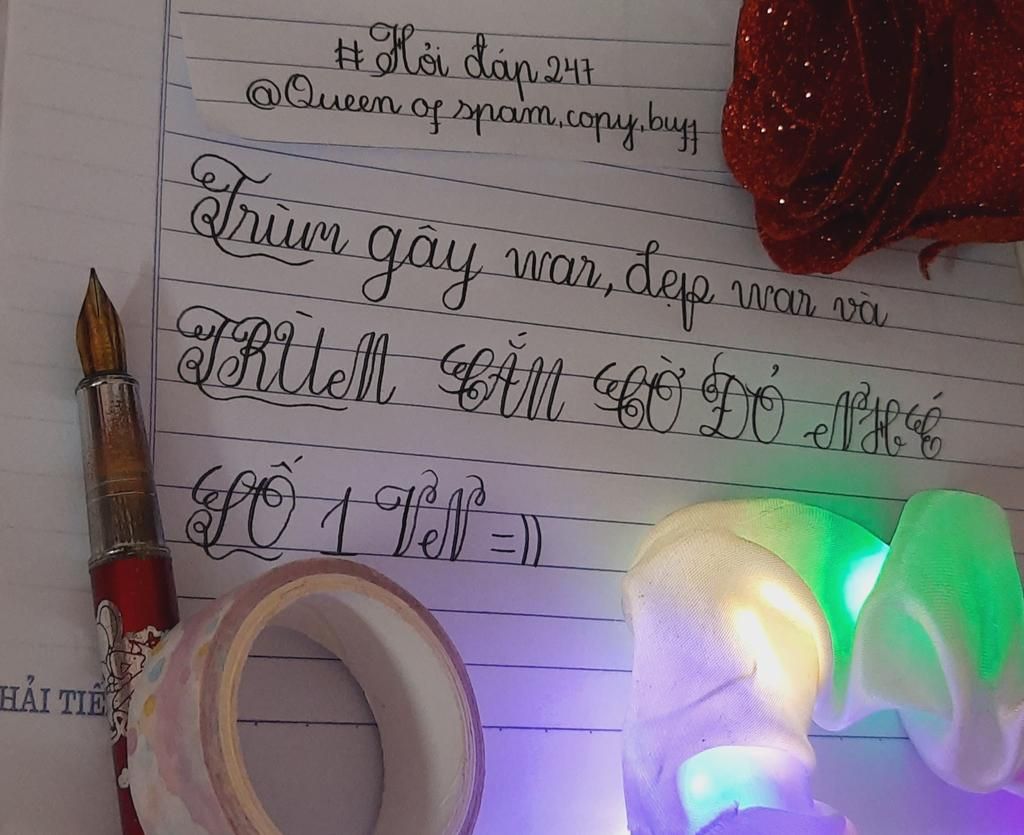 #Hỏi đáp 247
@Queen of spam,copy,buff
Trùm gây war, dẹp war và
TRÙM CẮM CỜ ĐỎ NHÉ
SỐ 1 VN =))
HẢI TIẾ